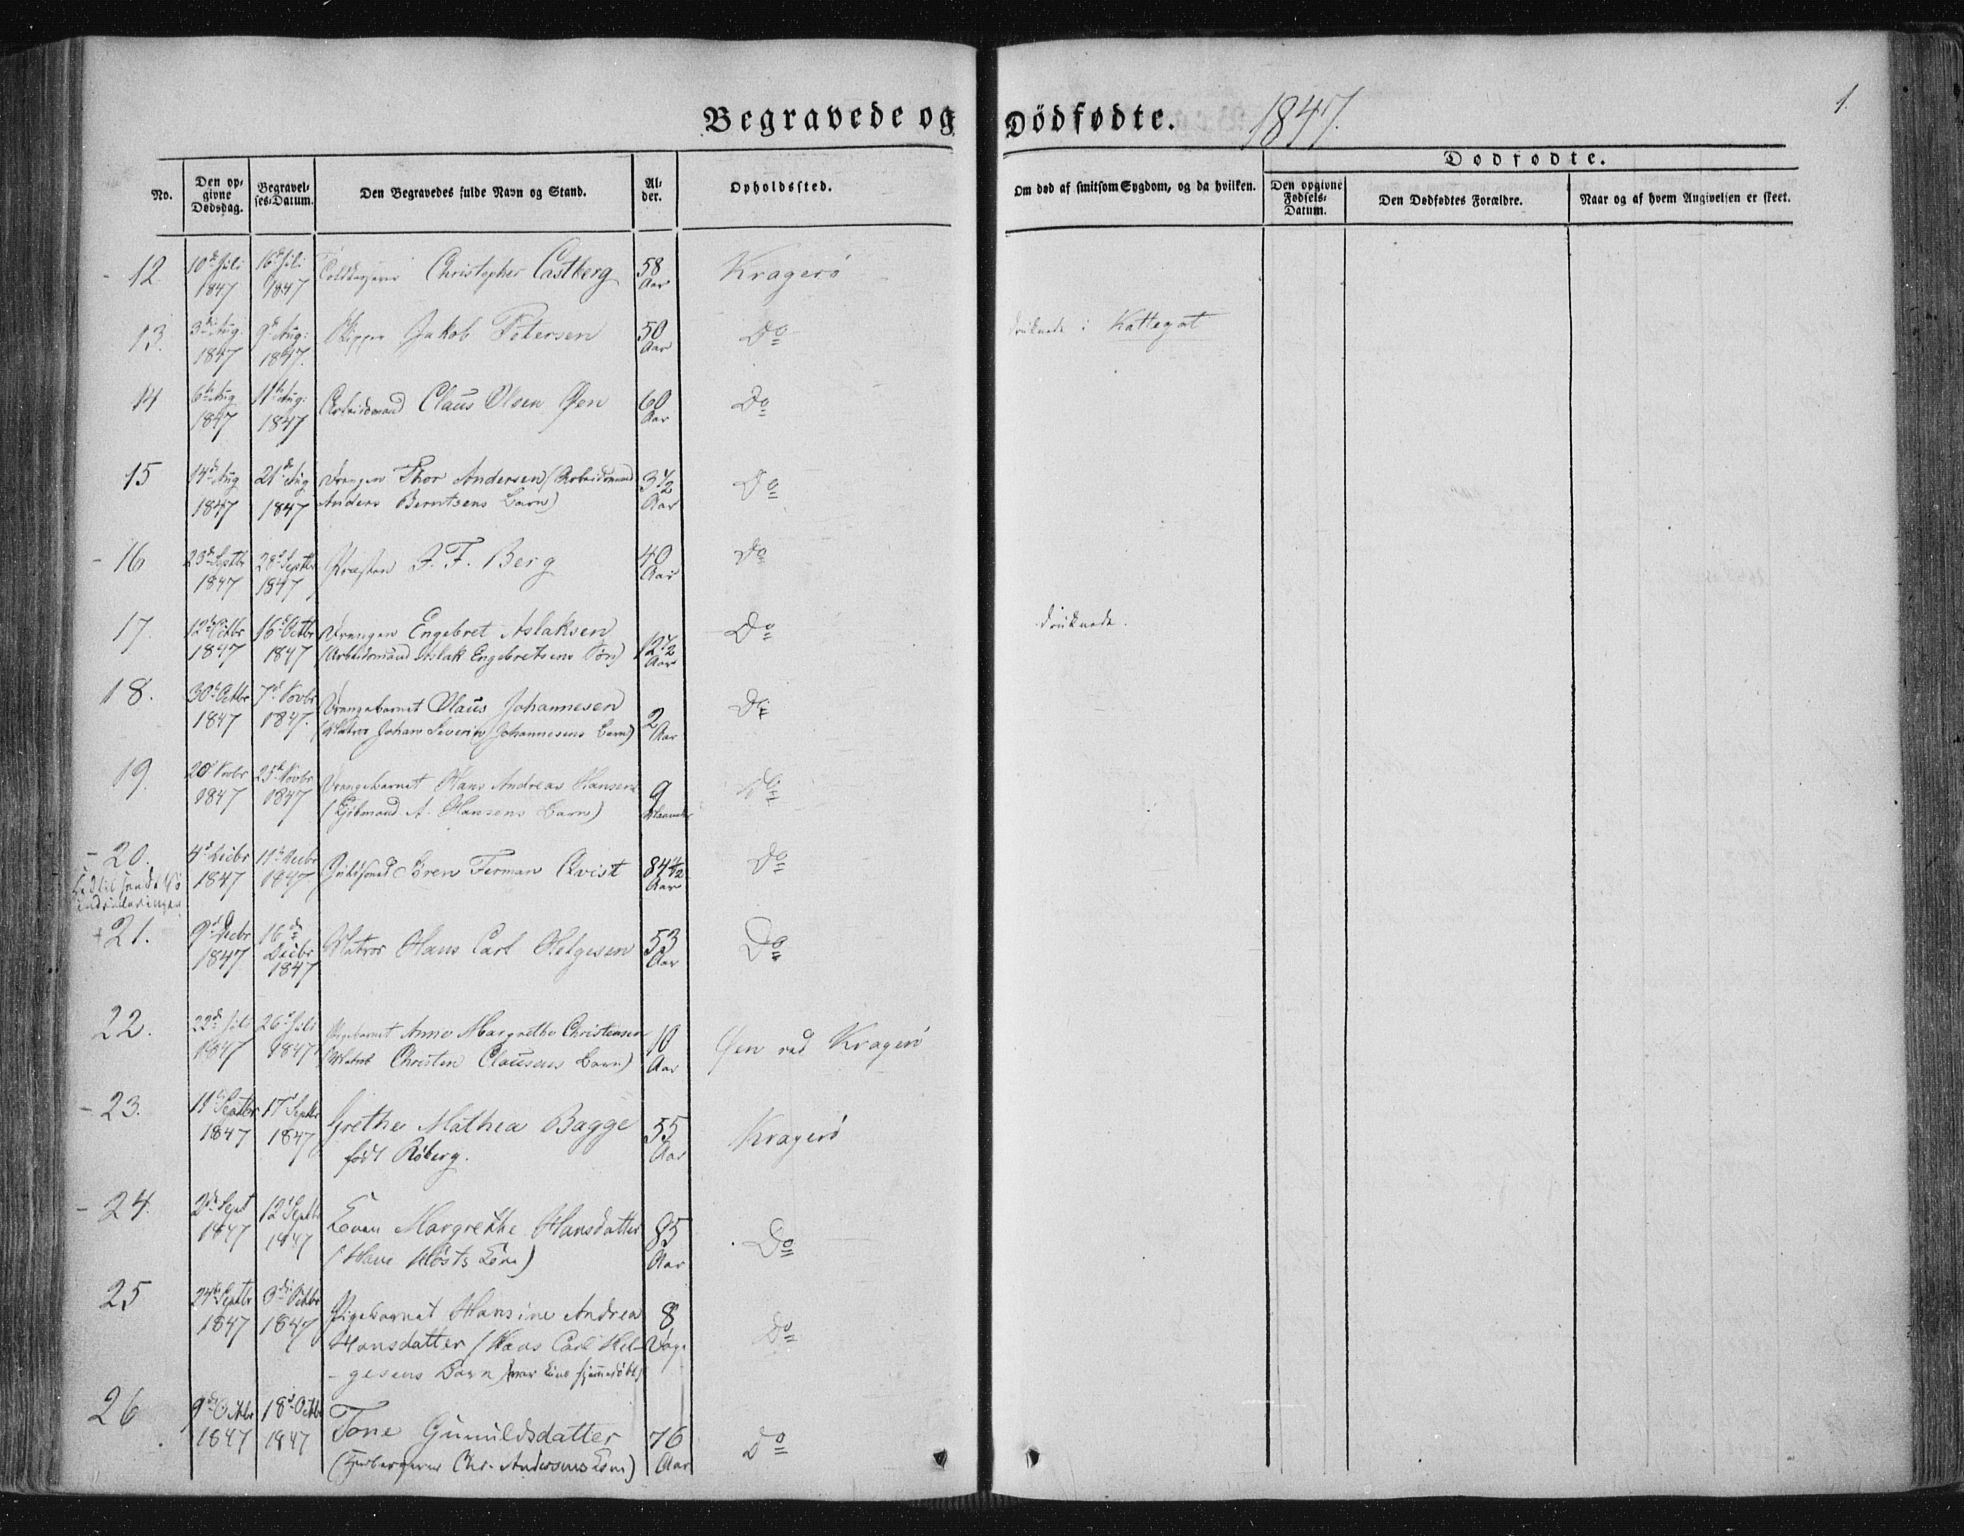 Begravede og Dödfødte. 1847.
1.
No.
Den opgivne Dødsdag.
Begravelses-Datum.
Den Begravedes fulde Navn og Stand.
Alder.
Opholdssted.
Om død af smitsom Sygdom, og da hvilken.
Dødfødte.
Den opgivne Fødsels-Datum.
Den Dødfødtes Forældre.
Naar og af hvem Angivelsen er skeet.
12. 10de Juli 1847 16de Juli 1847 Christopher Castberg 58 Aar Kragerö
13. 3die Aug. 1847 9de Aug: 1847. Skipper Jakob Petersen 50 Aar Do druknede i Kattegat
14 6te Aug 1847 11te Aug: 1847 Arbeidsmand Claus Olsen Øen 60 Aar Do
15 14de Aug 1847 21de Aug 1847 Drengen Thor Andersen (Arbeidsmand
Anders Berntsens Barn) 3 1/2 Aar Do
- 16 23de Septbr 1847 28de Septbr 1847 Præsten J. F. Berg 40 Aar Do
17. 12te Octbr 1847 16de Octbr 1847 Drengen Engebret Aslaksen
(Arbeidsmand Aslak Engebretsens Søn) 12 1/2 Aar Do druknede.
18. 30te Octbr 1847 7de Novbr 1847. Drengebarnet Olaus Johannesen
(Matros Johan Severin Johannesens Barn) 2 Aar Do
19. 20de Novbr 1847 25de Novbr 1847 Drengebarnet Hans Andreas Hansen
A. Hansens Barn) 9 Maaneder Do
- 20. 4de Decbr 1847 11te Decbr 1847 Sören Ferman Qvist 84 1/2 Aar Do
+ 21. 9de Decbr 1847 16de Decbr 1847 Matros Hans Carl Helgesen 53 Aar Do
22. 22de Juli 1847 26de Juli 1847 Pigebarnet Anne Margrethe Christensen
(Matros Christen Clausens Barn) 10 Aar Øen ved Kragerö
- 23. 11te Septbr 1847 17de Septbr 1847 Grethe Mathea Bagge
født Röberg. 55 Aar Kragerö
- 24. 2de Sept 1847 12te Septbr 1847 Margrethe Hansdatter
85 Aar Do
25 24de Septbr 1847 3die Octbr 1847 Pigebarnet Hansine Andrea
Hansdatter (Hans Carl Hel-
gesens Barn, var kun hjemmedöbt) 8 Dage Do
26 9de Octbr 1847 18de Octbr 1847 Tone Gunuldsdatter
Chr. Andersens Kone) 76 Aar Do